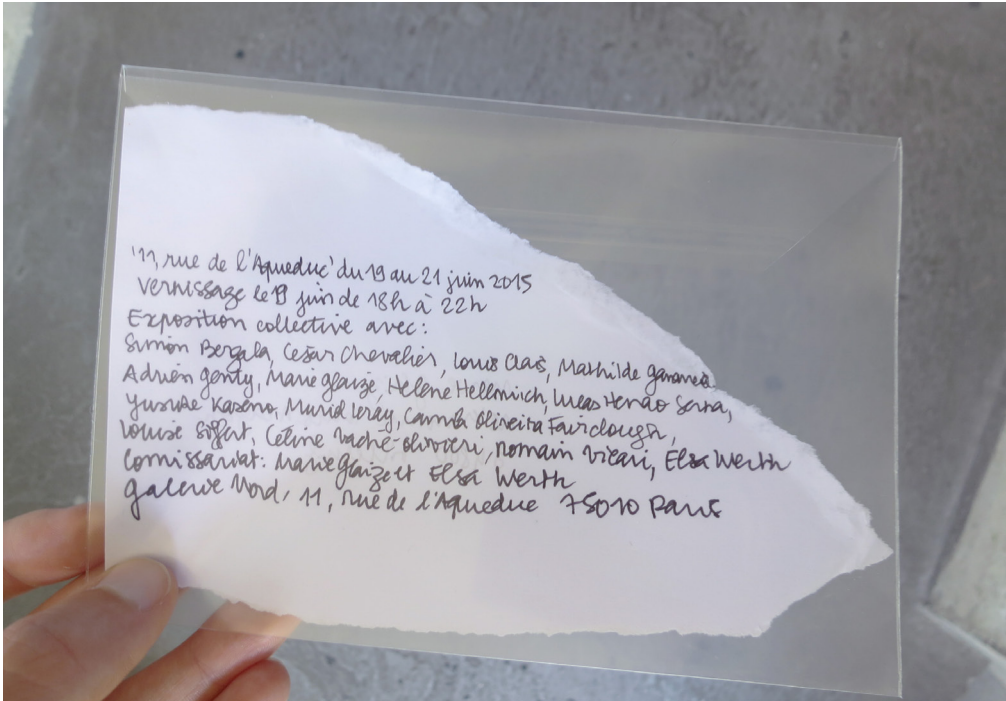 '11, rue de l'Aqueduc' du 19 au 21 juin 2015
Vernissage le 19 juin de 18h à 22h
Exposition collective avec:
Simon Bergala, César Chevalier, Louis Clais, Mathilde
Adrien Genty, Marie Glaize, Hélène Hellmich, Lucas Henao Serna,
Yusuke Kaseno, Muriel Leray, Camila Oliveira Fairclough,
Louise Siffert, Céline Vaché-Olivieri, Romain Vicari, Elsa Werth
Comissariat: Marie Glaize et Elsa Werth
Galerie Nord, 11, rue de l'Aqueduc 75010 Paris